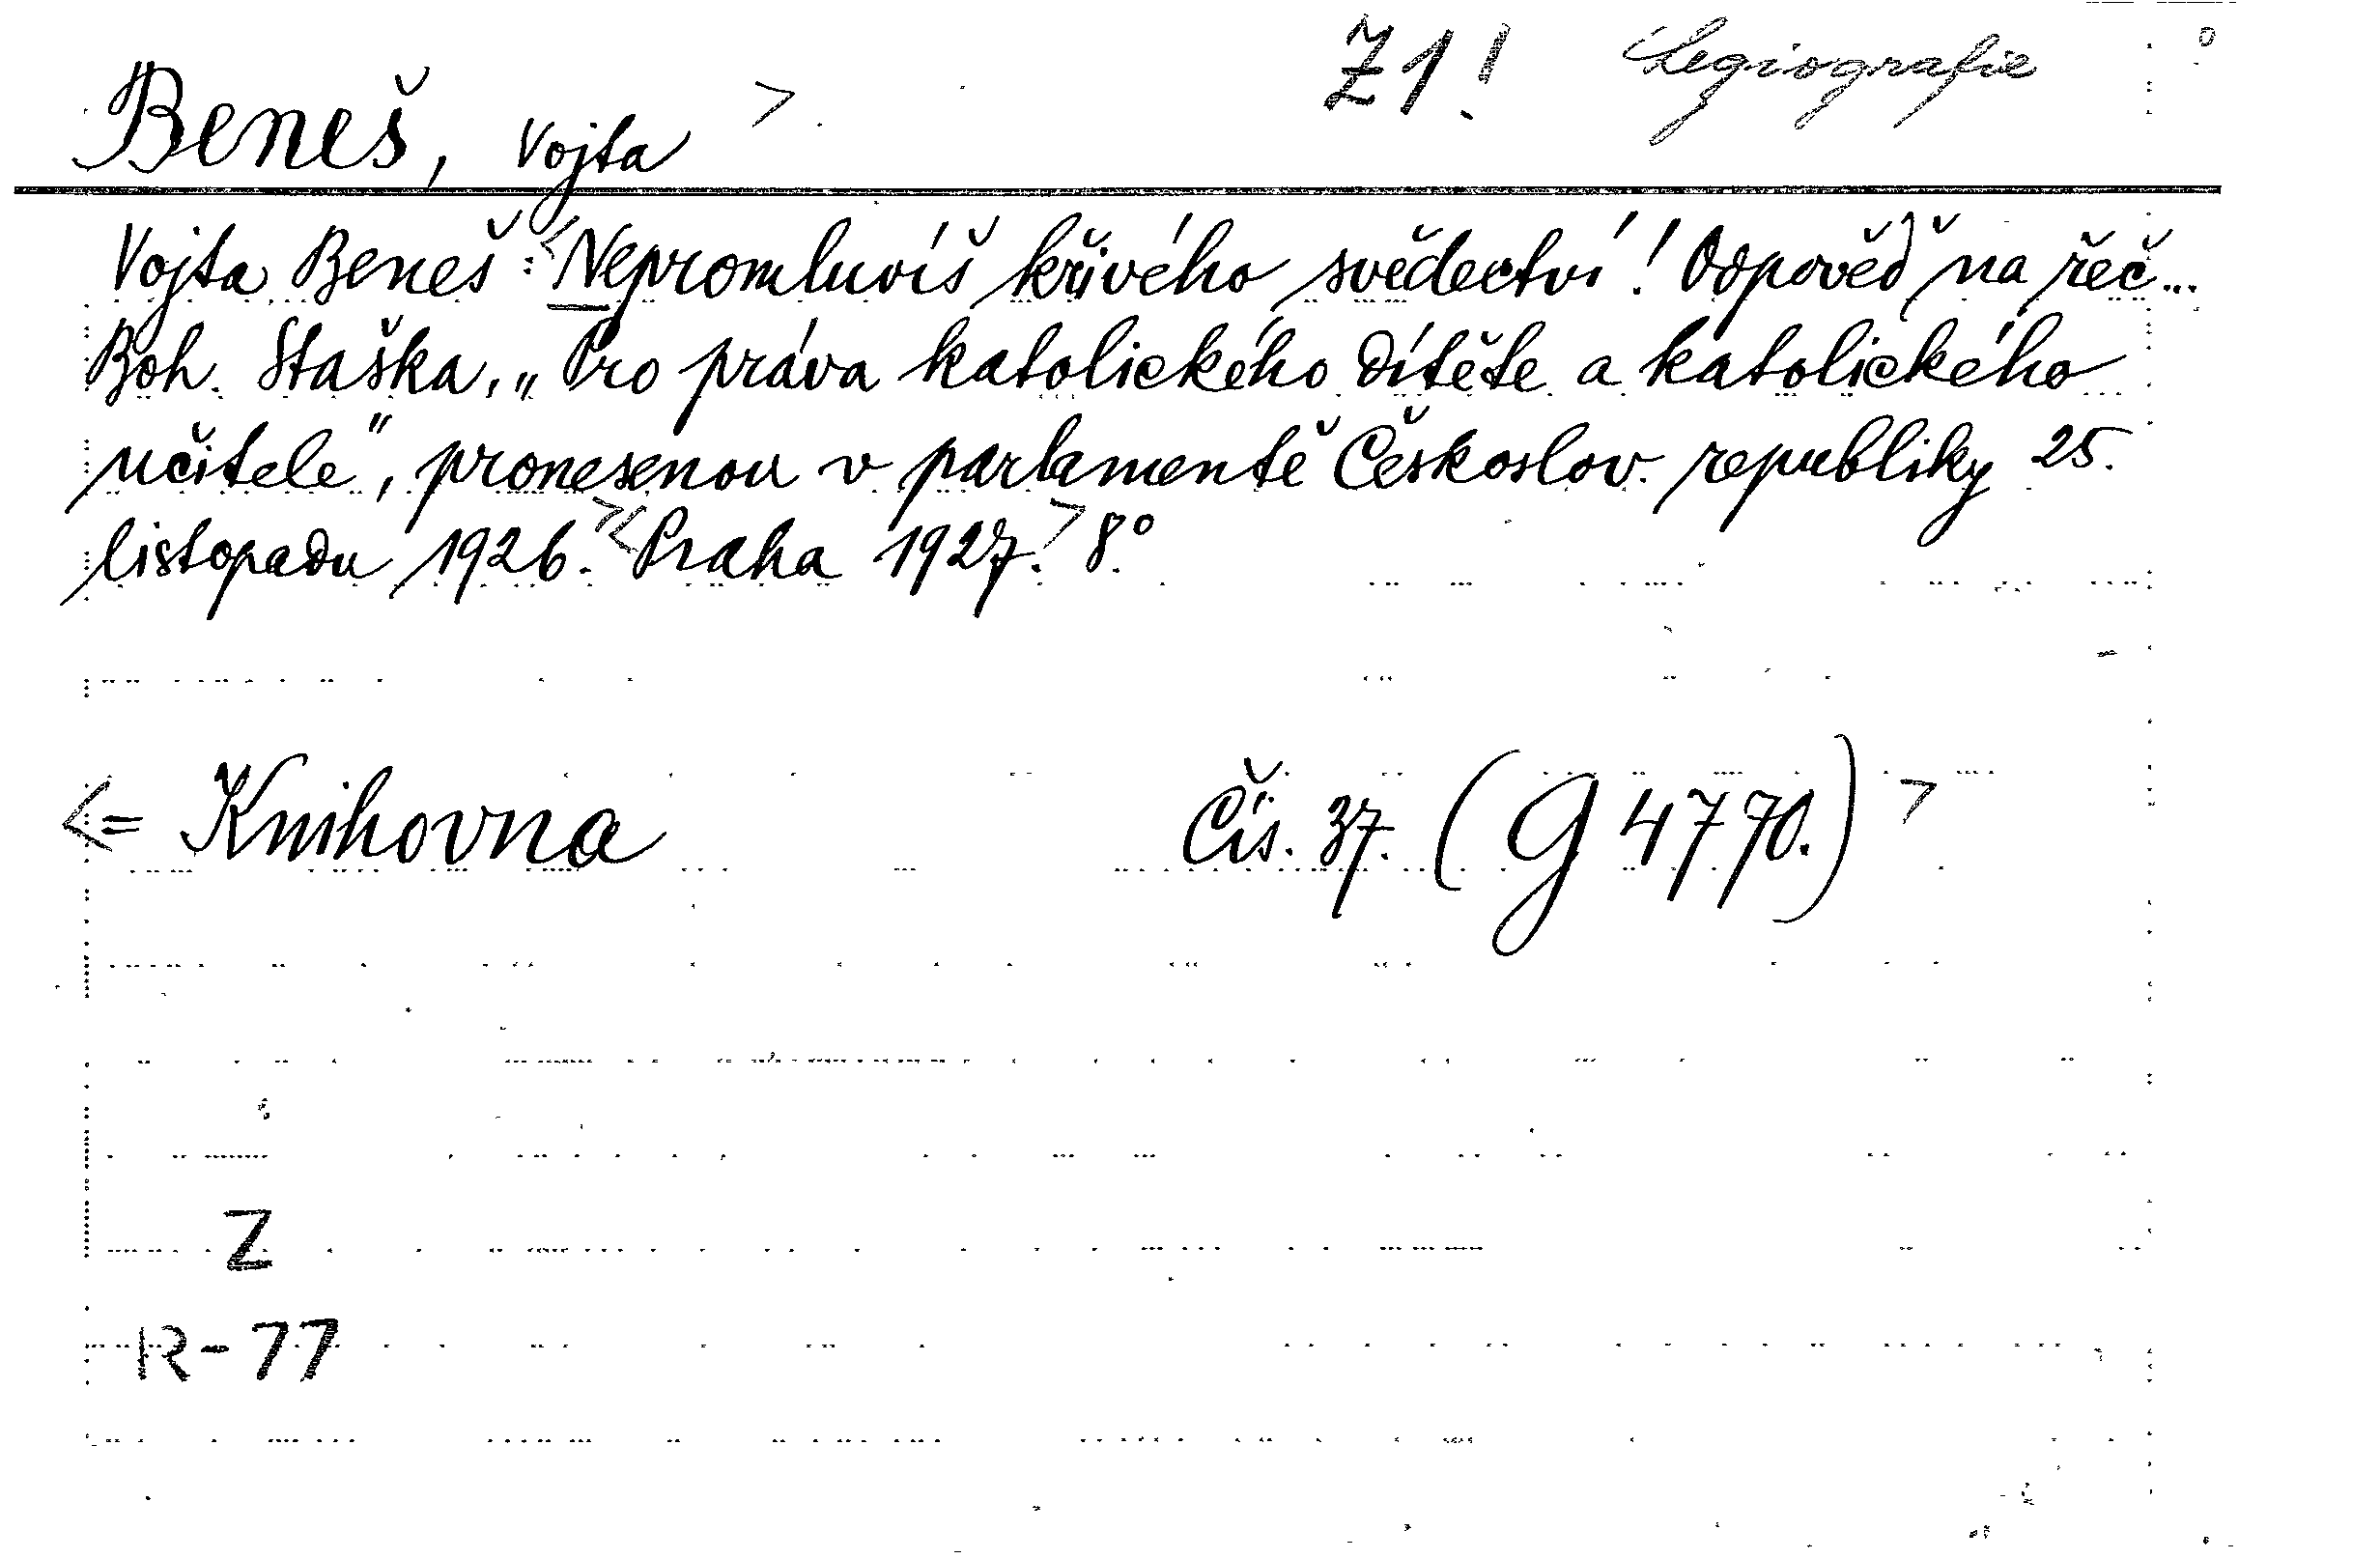 Z1! Legiografie
Beneš, Vojta >
Vojta Beneš: <Nepromluvíš křivého svědectví! Odpověď na řeč...
Boh. Staška, „Pro práva katolického dítěte a katolického
učitele", pronesenou v parlamentě Českoslov. republiky 25.
listopadu 1926.> <Praha 1927.> 8°.
<= Knihovna Čís. 37. (G 4770.) >
Z
R-77